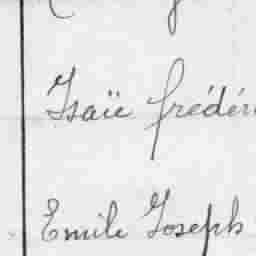 Isaïe frédéri
Emile Joseph